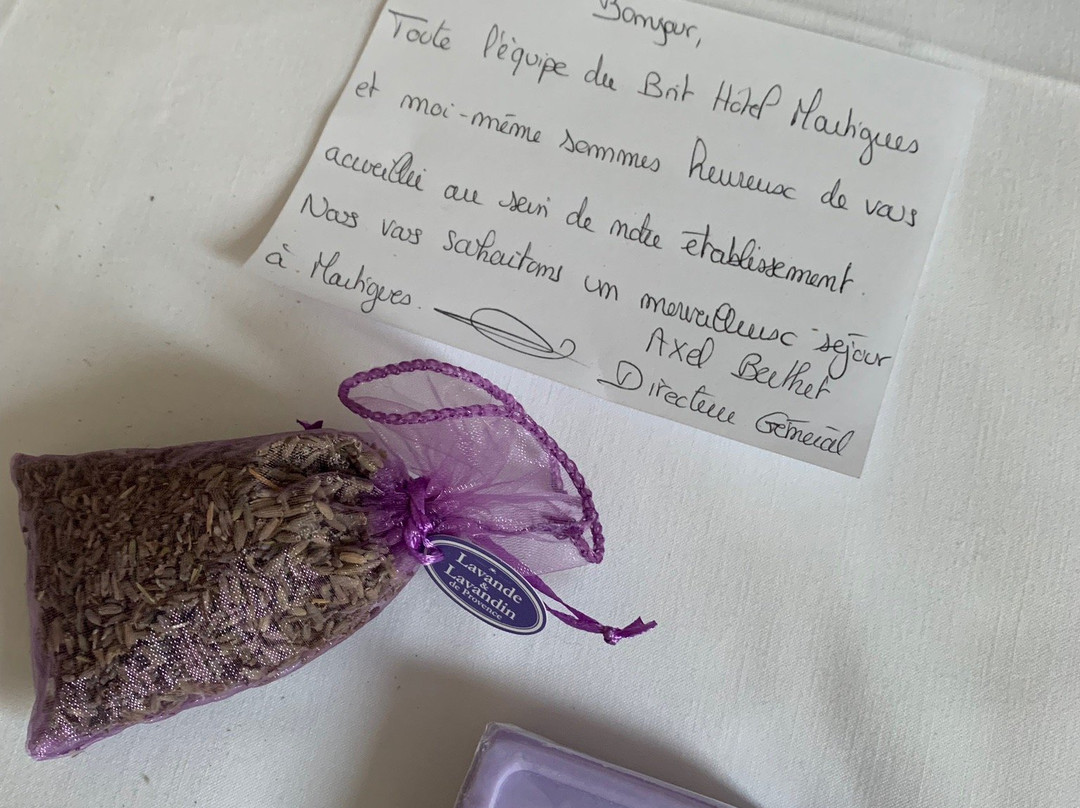 Bonjour,
Toute l'équipe du Brit Hôtel Martigues
et moi-même sommes heureux de vous
accueillir au sein de notre établissement.
Nous vous souhaitons un merveilleux séjour
à Martigues.
Axel Berthet
Directeur Général
Lavande
&
Lavandin
de Provence